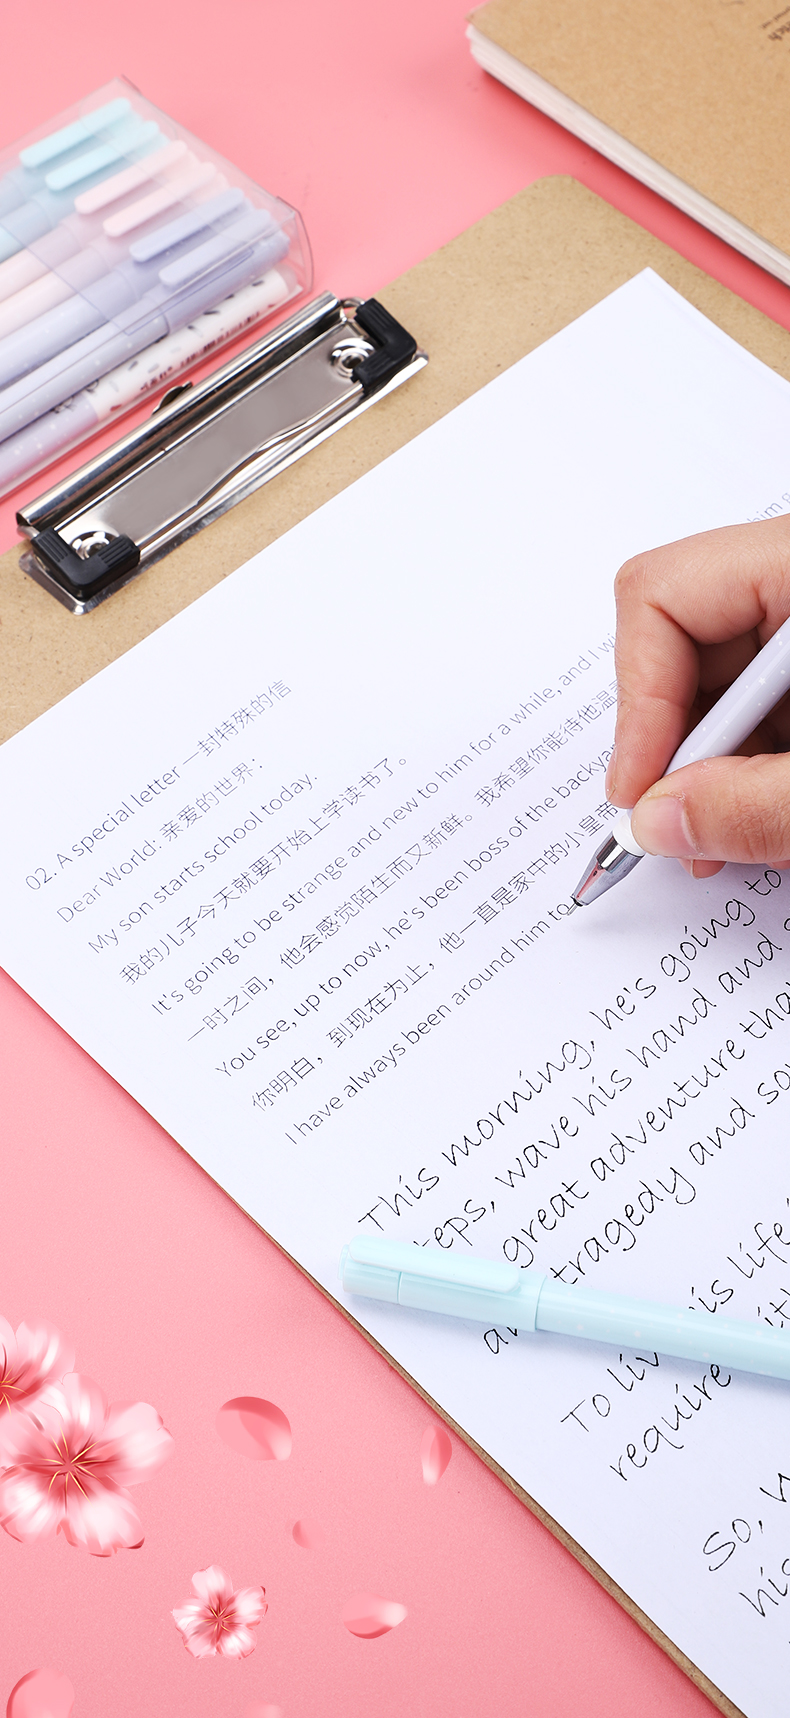 02. A special letter 一封特殊的信
Dear World: 亲爱的世界：
My son starts school today.
我的儿子今天就要开始上学读书了。
It's going to be strange and new to him for a while, and I
一时之间，他会感觉陌生而又新鲜。我希望你能待他温
You see, up to now, he's been boss of the
你明白，到现在为止，他一直是家中的小皇帝
I have always been around him to
This morning, he's going to
wave his hand and
great adventure
tragedy and
To
require
So,